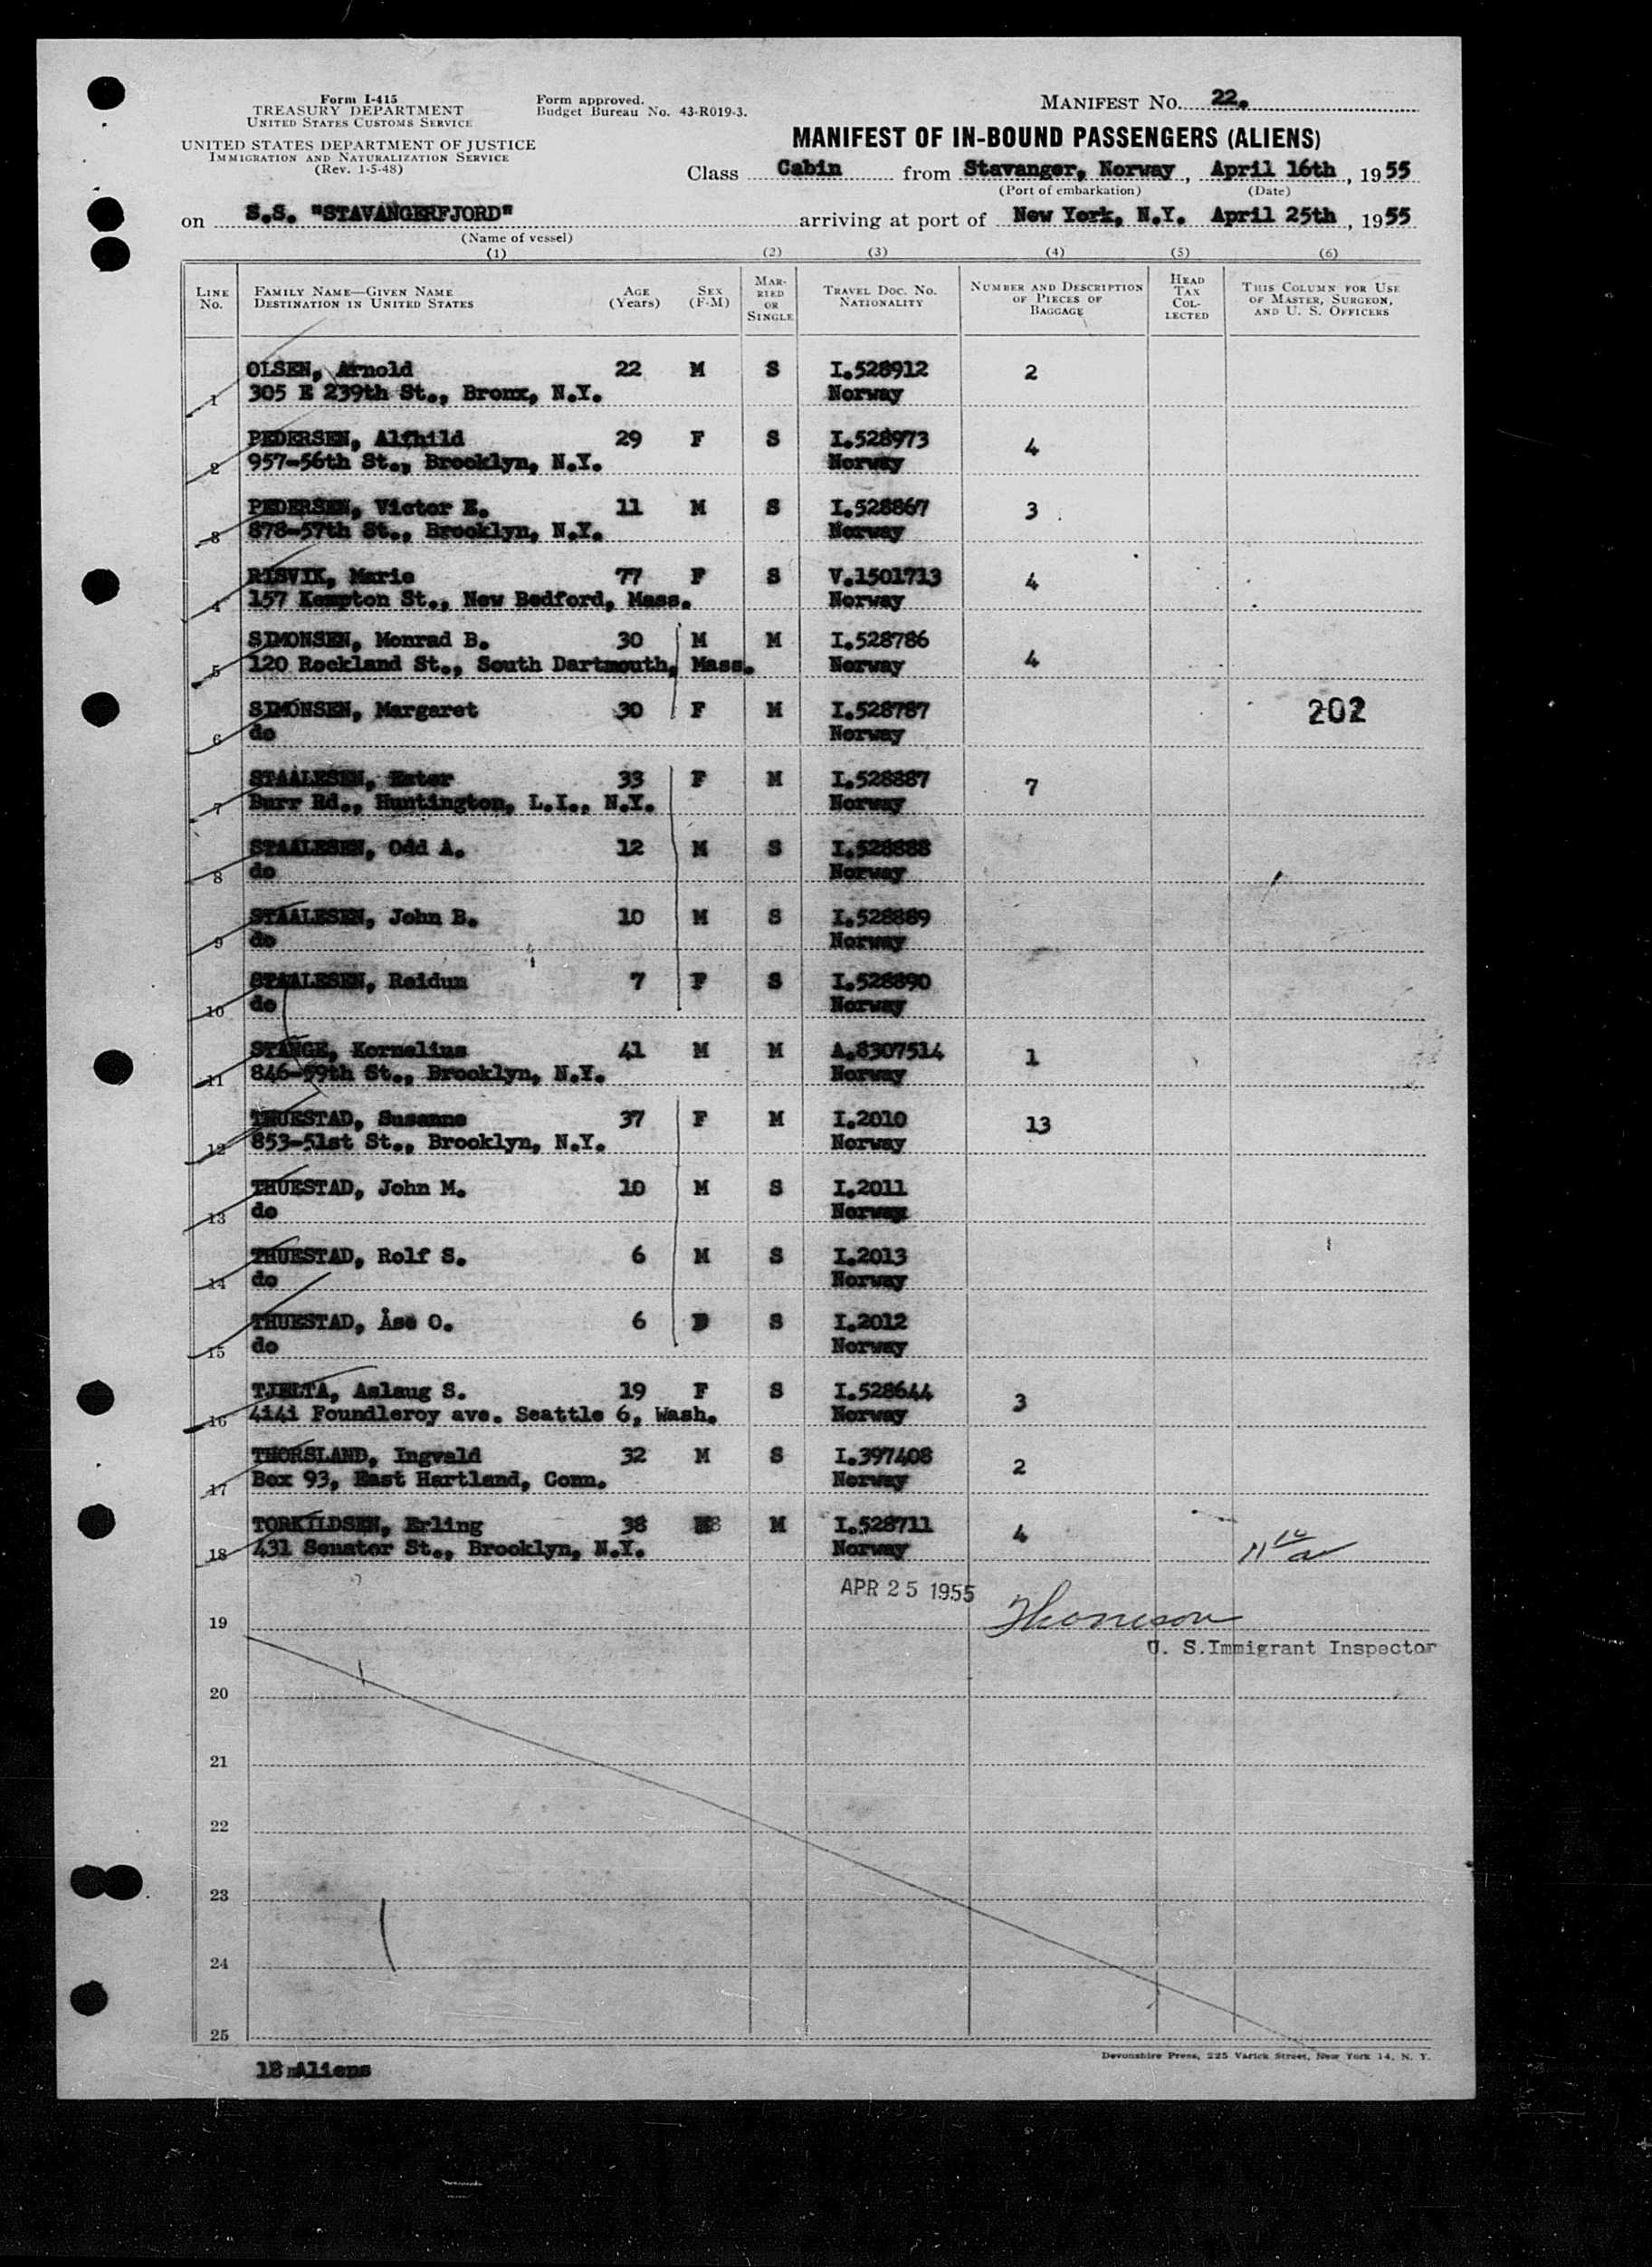 Form I-415
TREASURY DEPARTMENT
UNITED STATES CUSTOMS SERVICE
UNITED STATES DEPARTMENT OF JUSTICE
IMMIGRATION AND NATURALIZATION SERVICE
(Rev. 1-5-48)
Form approved.
Budget Bureau No. 43-R019-3.
MANIFEST No. 22.
MANIFEST OF IN-BOUND PASSENGERS (ALIENS)
Class Cabin from Stavanger, Norway, April 16th, 1955
(Port of embarkation) (Date)
on S.S. "STAVANGERFJORD" arriving at port of New York, N.Y. April 25th, 1955
(Name of vessel)
(1) (2) (3) (4) (5) (6)
LINE No. FAMILY NAME—GIVEN NAME DESTINATION IN UNITED STATES AGE (Years) SEX (F-M) MARRIED OR SINGLE TRAVEL DOC. No. NATIONALITY NUMBER AND DESCRIPTION OF PIECES OF BAGGAGE HEAD TAX COLLECTED THIS COLUMN FOR USE OF MASTER, SURGEON, AND U. S. OFFICERS
OLSEN, Arnold 22 M S I.528912 2
1 305 E 239th St., Bronx, N.Y. Norway
PEDERSEN, Alfhild 29 F S I.528973 4
2 957-56th St., Brooklyn, N.Y. Norway
PEDERSEN, Victor E. 11 M S I.528867 3
3 878-57th St., Brooklyn, N.Y. Norway
RISVIK, Marie 77 F S V.1501713 4
4 157 Kempton St., New Bedford, Mass. Norway
SIMONSEN, Monrad B. 30 M M I.528786
5 120 Rockland St., South Dartmouth, Mass. Norway 4
SIMONSEN, Margaret 30 F M I.528787 202
6 do Norway
STAALESEN, Ester 33 F M I.528887 7
7 Burr Rd., Huntington, L.I., N.Y. Norway
STAALESEN, Odd A. 12 M S I.528888
8 do Norway
STAALESEN, John B. 10 M S I.528889
9 do Norway
STAALESEN, Reidun 7 F S I.528890
10 do Norway
STANGE, Kornelius 41 M M A.8307514 1
11 846-59th St., Brooklyn, N.Y. Norway
THUESTAD, Susanne 37 F M I.2010 13
12 853-51st St., Brooklyn, N.Y. Norway
THUESTAD, John M. 10 M S I.2011
13 do Norway
THUESTAD, Rolf S. 6 M S I.2013
14 do Norway
THUESTAD, Åse O. 6 S I.2012
15 do Norway
TJELTA, Aslaug S. 19 F S I.528644 3
16 4141 Foundleroy ave. Seattle 6, Wash. Norway
THORSLAND, Ingvald 32 M S I.397408 2
17 Box 93, East Hartland, Conn. Norway
TORKILDSEN, Erling 38 M I.528711 4
18 431 Senator St., Brooklyn, N.Y. Norway
APR 25 1955
19
U. S. Immigrant Inspector
20
21
22
23
24
25
18 Aliens
Devonshire Press, 225 Varick Street, New York 14, N. Y.